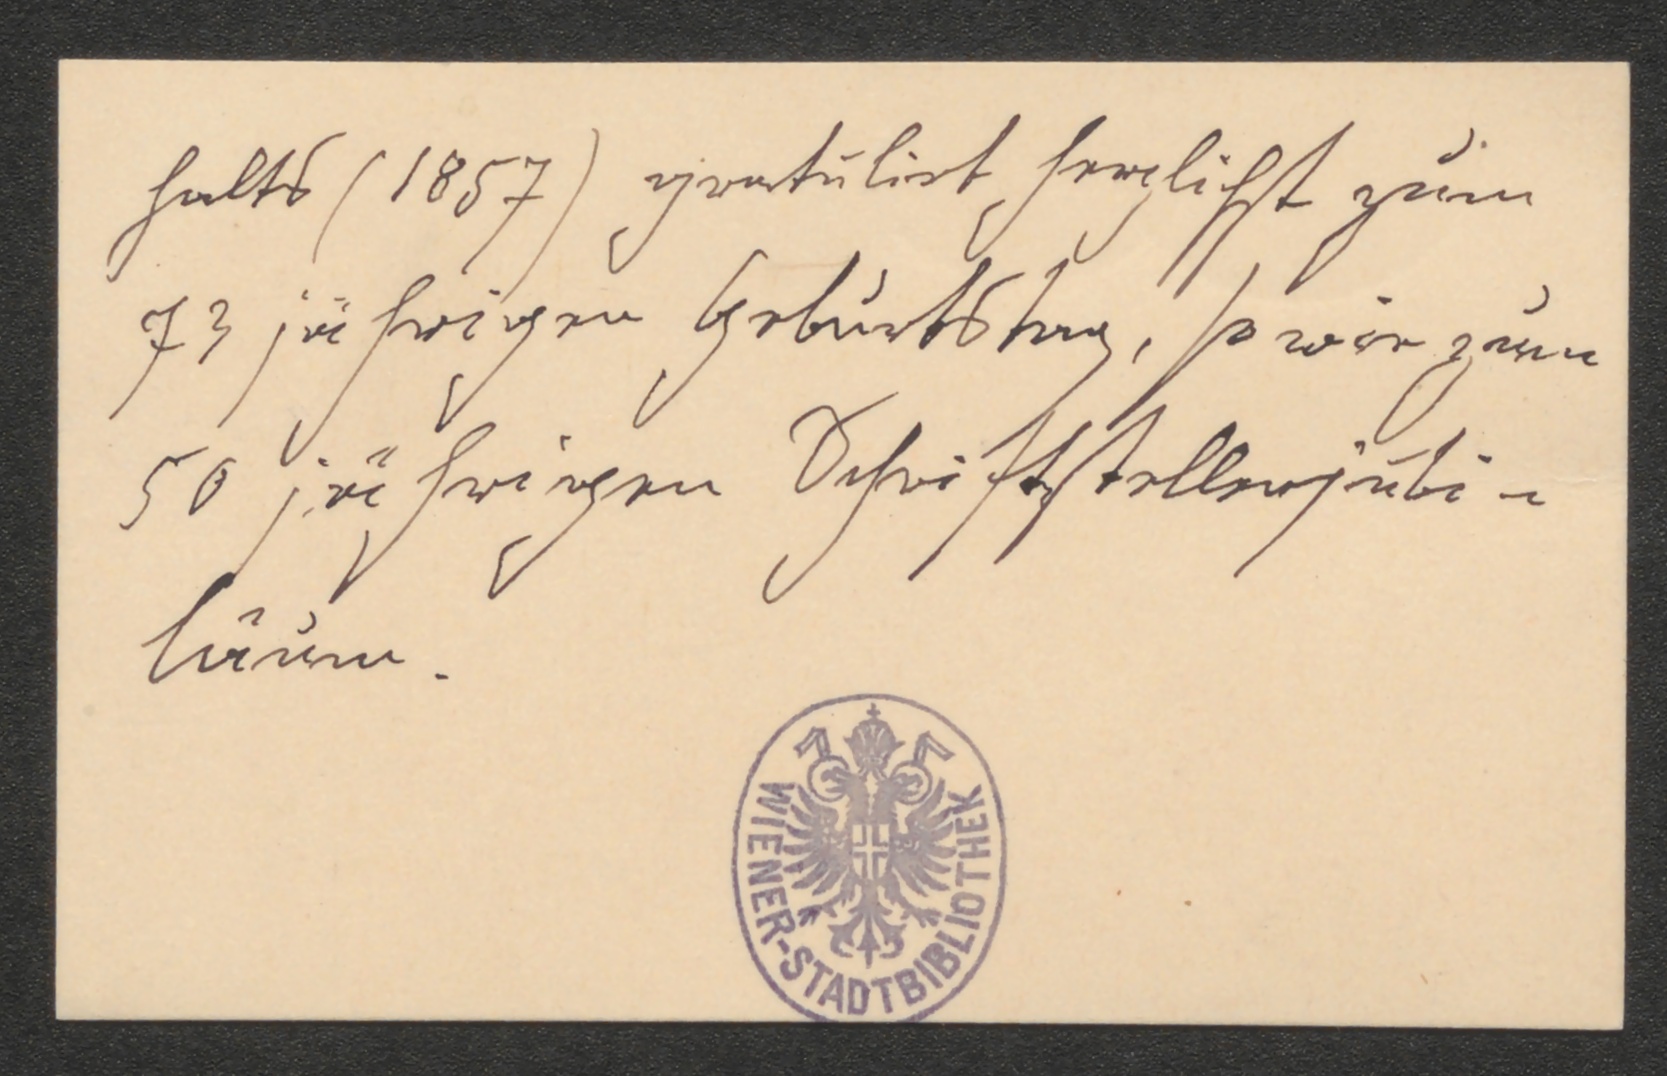 halts (1857) gratulirt herzlichst zum
73 jährigen Geburtstag, so wie zum
50 jährigen Schriftstellerjubi-
läum.
WIENER-STADTBIBLIOTHEK